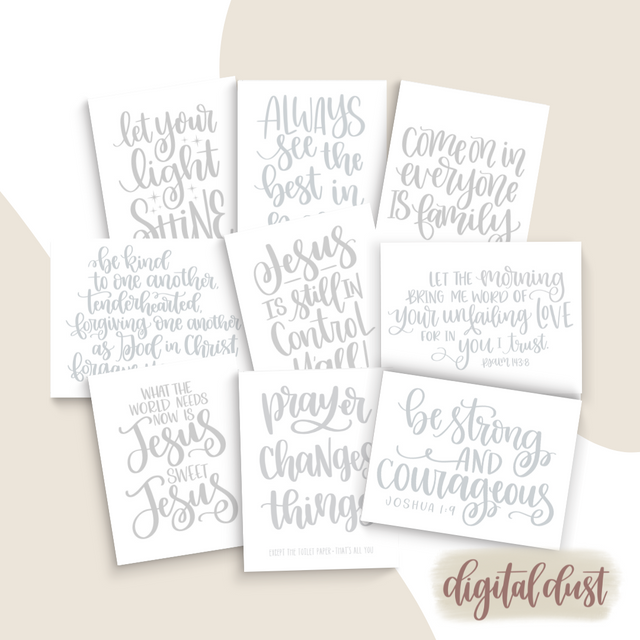 let your
light
SHINE
ALWAYS
see the
best in
Come on in
everyone
IS family
be kind
to one another,
tenderhearted,
forgiving one another
as God in Christ,
forgave
Jesus
IS still IN
Control
Y'all!
LET THE morning
BRING ME WORD OF
your unfailing LOVE
FOR IN you I trust.
PSALM 143:8
WHAT THE
WORLD NEEDS
NOW IS
Jesus
SWEET
Jesus
prayer
CHANGES
things
EXCEPT THE TOILET PAPER - THAT'S ALL YOU
be strong
AND
Courageous
JOSHUA 1:9
digital dust